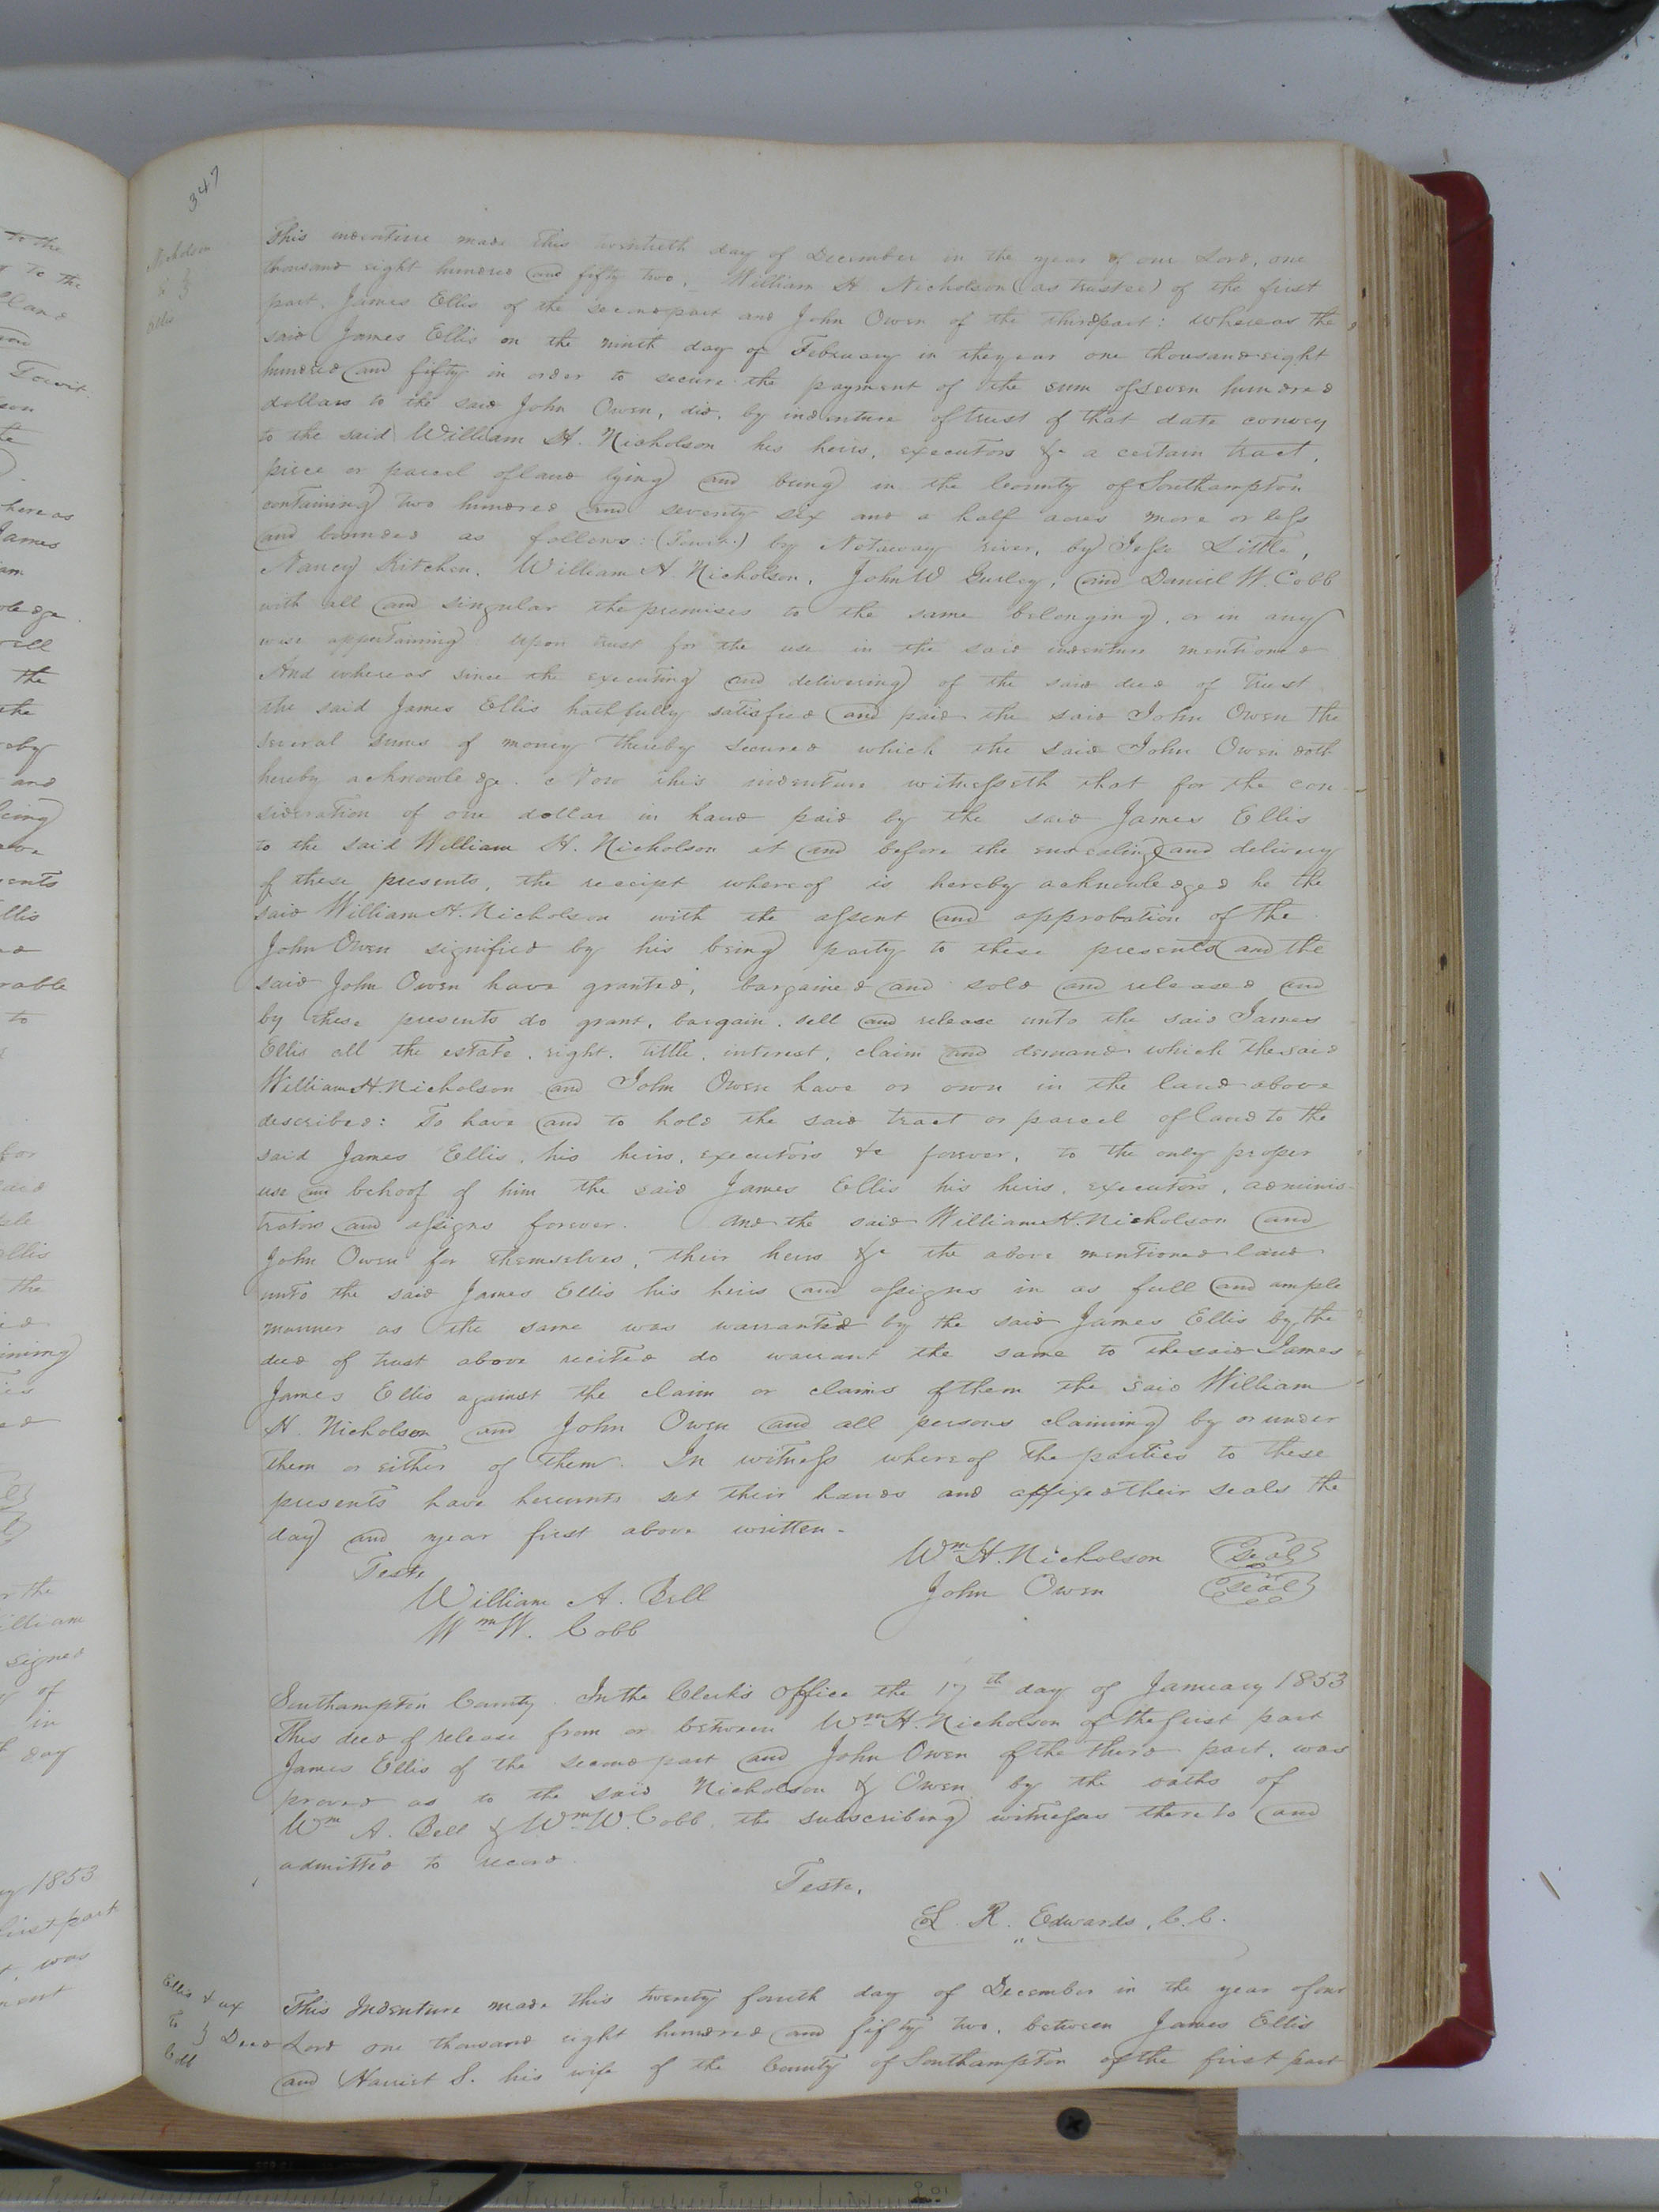 347
Nicholson
to
Ellis
This indenture made this twentieth day of December in the year of our Lord, one
thousand eight hundred and fifty two, William H. Nicholson (as trustee) of the first
part, James Ellis of the second part and John Owen of the third part: whereas the
said James Ellis on the ninth day of February in the year one thousand eight
hundred and fifty in order to secure the payment of the sum of seven hundred
dollars to the said John Owen, did, by indenture of trust of that date convey
to the said William H. Nicholson his heirs, executors &c a certain tract,
piece or parcel of land lying and being in the County of Southampton
containing two hundred and seventy six and a half acres more or less
and bounded as follows: (Towit.) by Notaway river, by Jesse Little,
Nancy Kitchen, William H. Nicholson, John W Gurley, and Daniel W. Cobb
with all and singular the premises to the same belonging, or in any
wise appertaining upon trust for the use in the said indenture mentioned
And whereas since the executing and delivering of the said deed of trust
the said James Ellis hath fully satisfied and paid the said John Owen the
several sums of money thereby secured which the said John Owen doth
hereby acknowledge. Now this indenture witnesseth that for the con
sideration of one dollar in hand paid by the said James Ellis
to the said William H. Nicholson at and before the ensealing and delivery
of these presents, the receipt whereof is hereby acknowledged he the
said William H. Nicholson with the assent and approbation of the
John Owen signified by his being party to these presents and the
said John Owen have granted, bargained and sold and released and
by these presents do grant, bargain, sell and release unto the said James
Ellis all the estate, right, tittle, interest, claim and demand which the said
William H. Nicholson and John Owen have or own in the land above
described: To have and to hold the said tract or parcel of land to the
said James Ellis, his heirs, executors &c forever, to the only proper
use and behoof of him the said James Ellis his heirs, executors, adminis-
trators and assigns forever. And the said William H. Nicholson and
John Owen for themselves, their heirs &c the above mentioned land
unto the said James Ellis his heirs and assigns in as full and ample
manner as the same was warranted by the said James Ellis by the
deed of trust above recited do warrant the same to the said James
James Ellis against the claim or claims of them the said William
H. Nicholson and John Owen and all persons claiming by or under
them or either of them. In witness whereof the parties to these
presents have hereunto set their hands and affixed their seals the
day and year first above written.
Wm H. Nicholson (seal)
Teste
John Owen (seal)
William A. Bell
Wm W. Cobb
Southampton County. In the Clerk's Office the 17th day of January 1853
This deed of release from or between Wm H. Nicholson of the first part
James Ellis of the second part and John Owen of the third part, was
proved as to the said Nicholson & Owen by the oaths of
Wm A. Bell & Wm W. Cobb, the subscribing witnesses thereto and
admitted to record.
Teste,
L. R. Edwards, C. C.
Ellis & ux
To } Deed
This Indenture made this twenty fourth day of December in the year of our
Lord one thousand eight hundred and fifty two, between James Ellis
and Harriet S. his wife of the County of Southampton of the first part